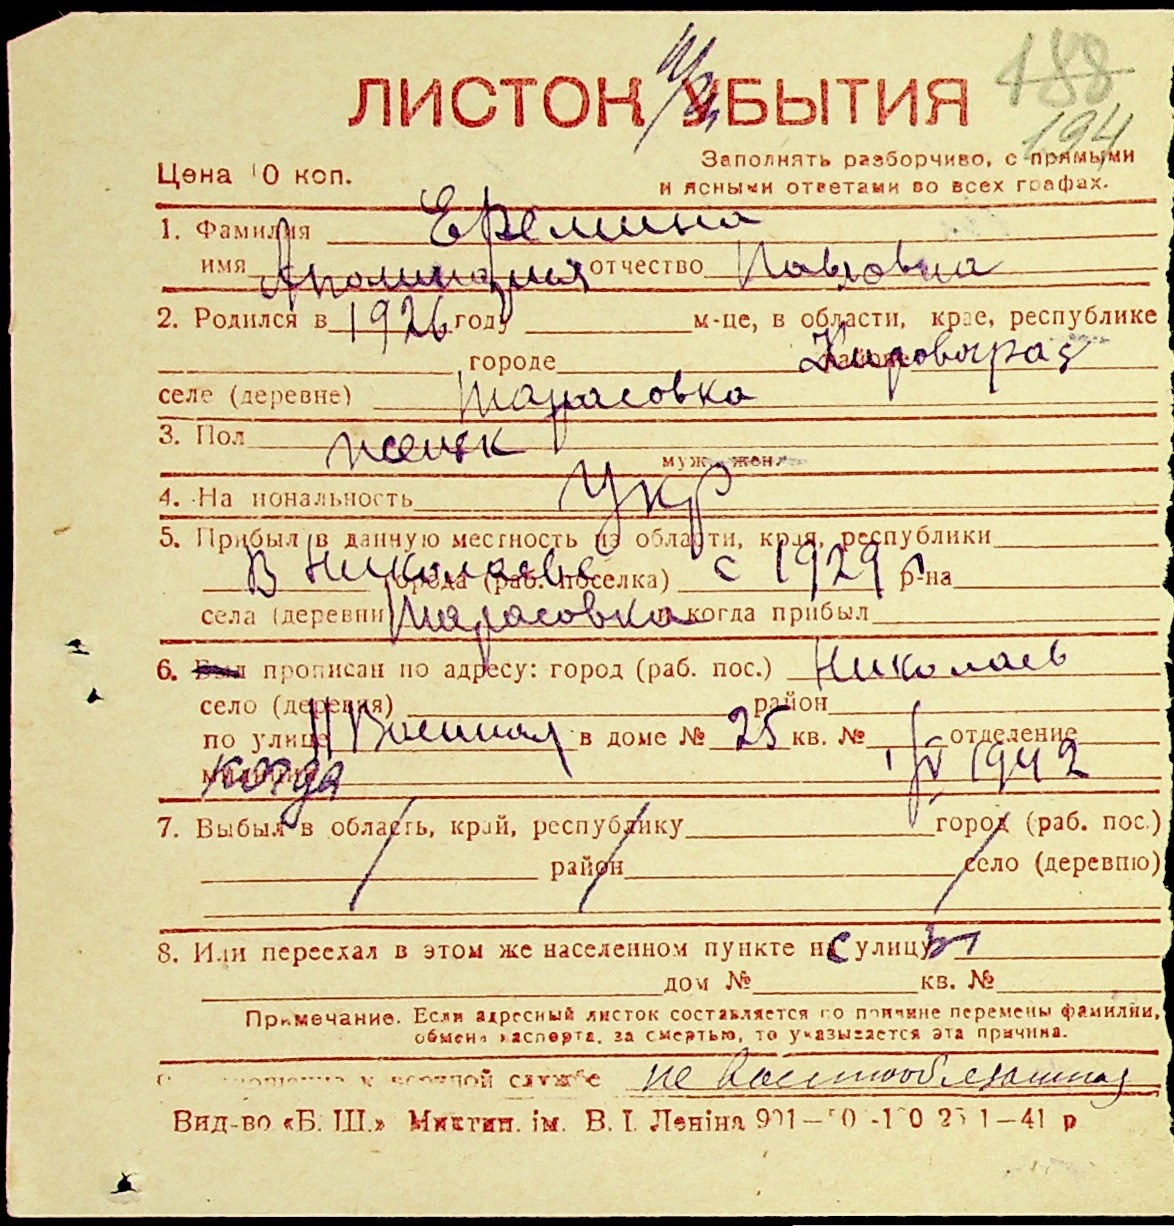 488
194
ЛИСТОК УБЫТИЯ
Цена 10 коп.
Заполнять разборчиво, с прямыми
и ясными ответами во всех графах.
1. Фамилия Еремина
имя Аполинария отчество Павловна
2. Родился в 1926 году м-це, в области, крае, республике
городе Кировоград
селе (деревне) Тарасовка
3. Пол женск
муж. жен.
4. Национальность Укр
5. Прибыл в данную местность из области, края, республики
В Николаеве города (раб. поселка) с 1929 г р-на
села (деревни Тарасовка и когда прибыл
6. Был прописан по адресу: город (раб. пос.) Николаев
село (деревня) район
по улице Военная в доме № 25 кв. № отделение
милиции когда 1/IV 1942
7. Выбыл в область, край, республику город (раб. пос.)
район село (деревню)
8. Или переехал в этом же населенном пункте на улицу
дом № кв. №
Примечание. Если адресный листок составляется по причине перемены фамилии,
обмена паспорта, за смертью, то указывается эта причина.
военной службе не военнообязанная
Вид-во «Б. Ш.» Миктип. ім. В. І. Леніна